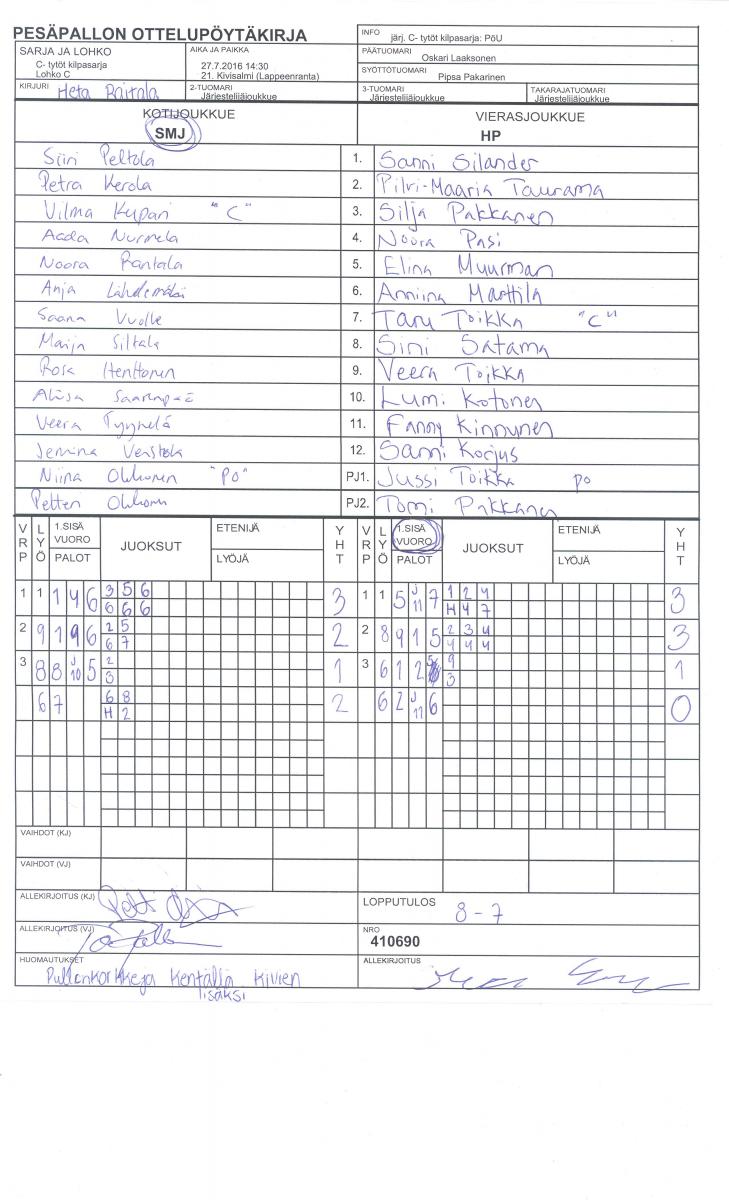 PESÄPALLON OTTELUPÖYTÄKIRJA
INFO järj. C- tytöt kilpasarja: PöU
SARJA JA LOHKO
C- tytöt kilpasarja
Lohko C
AIKA JA PAIKKA
27.7.2016 14:30
21. Kivisalmi (Lappeenranta)
PÄÄTUOMARI
Oskari Laaksonen
SYÖTTÖTUOMARI
Pipsa Pakarinen
KIRJURI Heta Raitala
2-TUOMARI
Järjestelijäjoukkue
3-TUOMARI
Järjestelijäjoukkue
TAKARAJATUOMARI
Järjestelijäjoukkue
KOTIJOUKKUE
SMJ
VIERASJOUKKUE
HP
Siiri Peltola 1. Sanni Silander
Petra Kerola 2. Pilvi-Maaria Taurama
Vilma Kupari "C" 3. Silja Pakkanen
Aada Nurmela 4. Noora Pasi
Noora Rantala 5. Elina Muurman
Anja Lähdemäki 6. Anniina Marttila
Saana Vuolle 7. Taru Toikka "C"
Maija Siltala 8. Sini Satama
Rosa Henttonen 9. Veera Toikka
Aliisa Saarenpää 10. Lumi Kotonen
Veera Tyynelä 11. Fanny Kinnunen
Jemina 12. Sanni Korjus
Niina Ohhonen "PO" PJ1. Jussi Toikka PO
Petteri PJ2. Tomi Pakkanen
VRP LYÖ 1.SISÄ VUORO PALOT JUOKSUT ETENIJÄ LYÖJÄ YHT VRP LYÖ 1.SISÄ VUORO PALOT JUOKSUT ETENIJÄ LYÖJÄ YHT
1 1 1 4 6 3 5 6 3 1 1 5 J 7 1 2 4 3
6 6 6 11 H 4 7
2 9 1 9 6 2 5 2 2 8 9 1 5 2 3 4 3
6 7 4 4 4
3 8 8 J 5 2 1 3 6 1 2 9 1
10 3 3
6 7 6 8 2 6 2 J 6 0
H 2 11
VAIHDOT (KJ)
VAIHDOT (VJ)
ALLEKIRJOITUS (KJ)
LOPPUTULOS 8 - 7
ALLEKIRJOITUS (VJ)
NRO
410690
HUOMAUTUKSET
Pullonkorkkeja kentällä kivien
lisäksi
ALLEKIRJOITUS